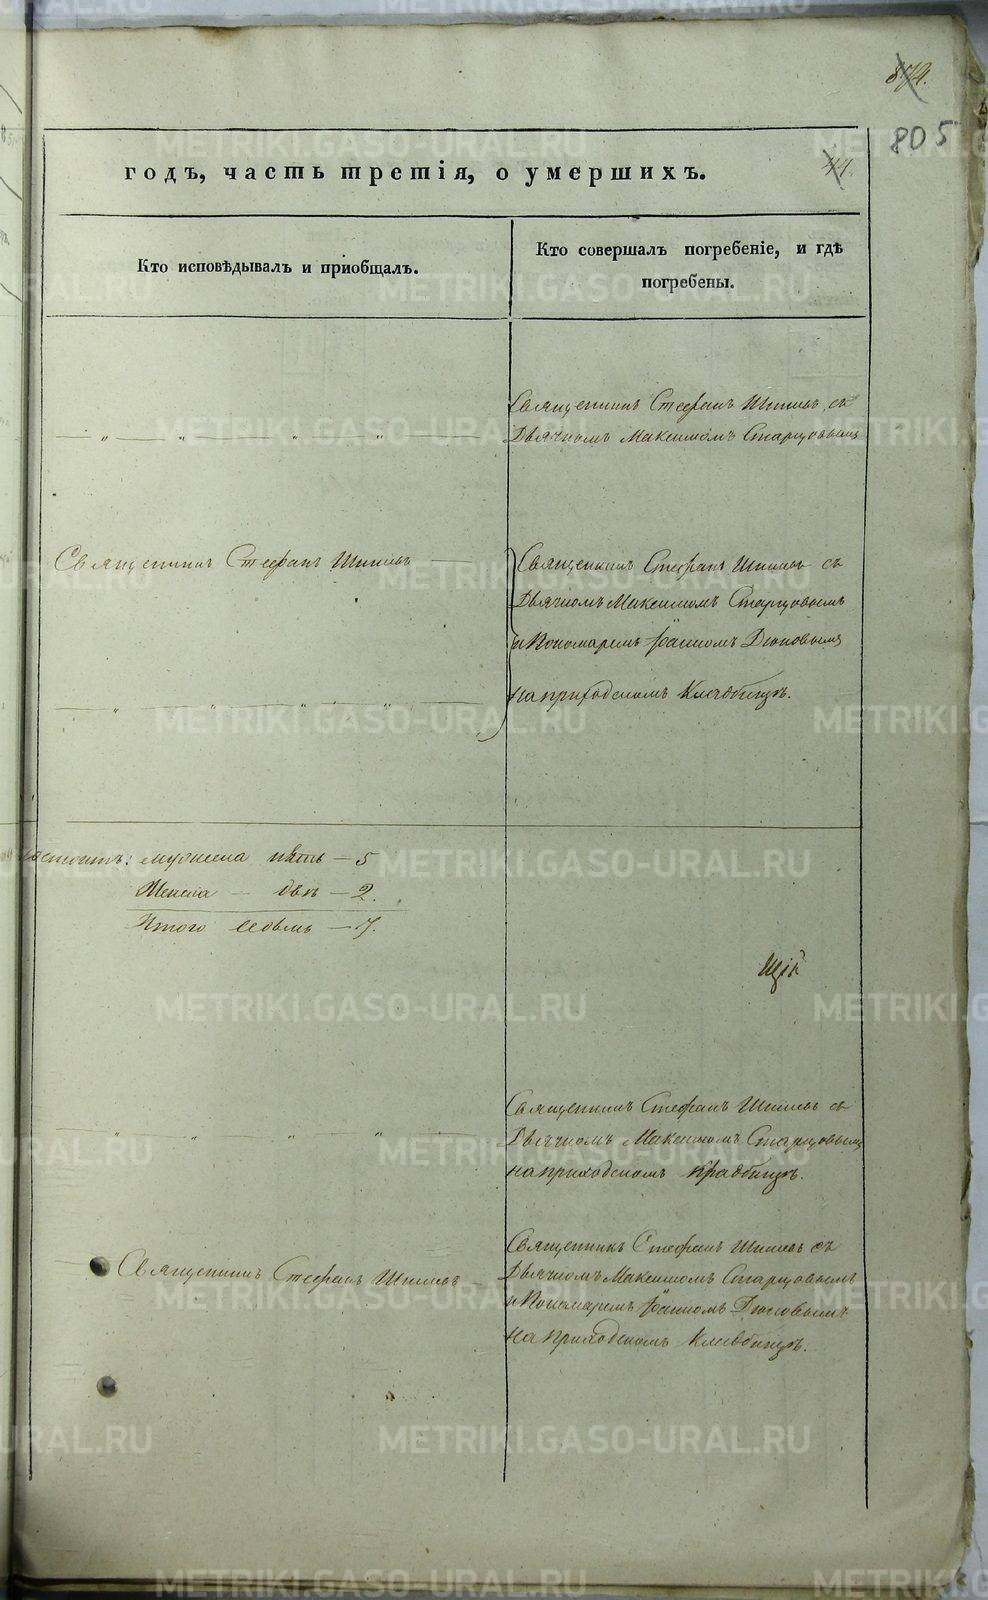 874.
805
44.
годъ, часть третія, о умершихъ.
Кто исповѣдывалъ и пріобщалъ.
Кто совершалъ погребеніе, и гдѣ
погребены.
Священникъ Стефанъ Шишевъ съ
Дьячкомъ Максимомъ Старцовымъ
Священникъ Стефанъ Шишевъ
Священникъ Стефанъ Шишевъ съ
Дьячкомъ Максимомъ Старцовымъ
и Пономаремъ Іоанномъ
на приходскомъ Кладбищѣ.
состоитъ: мужеска пять — 5
Женска — двѣ — 2.
Итого седмь — 7.
Священникъ Стефанъ Шишевъ съ
Дьячкомъ Максимомъ Старцовымъ
на приходскомъ кладбищѣ.
Священникъ Стефанъ Шишевъ съ
Священникъ Стефанъ Шишевъ
Дьячкомъ Максимомъ Старцовымъ
и Пономаремъ Іоанномъ
на приходскомъ Кладбищѣ.
METRIKI.GASO-URAL.RU